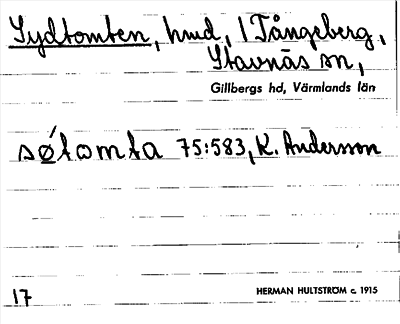 Sydtomten, hmd, 1 Tångeberg,
Stavnäs sn,
Gillbergs hd, Värmlands län
sǿtomta 75:583, K. Andersson
17
HERMAN HULTSTRÖM c. 1915